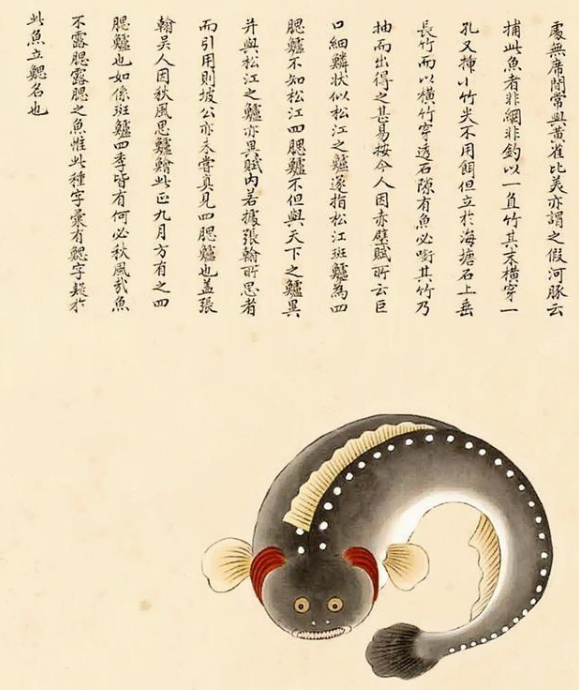 處無席間常與黃雀比美亦謂之假河豚云
捕此魚者非網非釣以一直竹其末橫穿一
孔又揷小竹尖不用餌但立於海塘石上垂
長竹而以橫竹穿透石隙有魚必嚙其竹乃
抽而出得之甚易按今人因赤壁賦所云巨
口細鱗狀似松江之鱸遂指松江斑鱸為四
腮鱸不知松江四腮鱸不但與天下之鱸異
并與松江之鱸亦異賦內若據張翰所思者
而引用則坡公亦未嘗真見四腮鱸也蓋張
翰吳人因秋風思鱸鱠此正九月方有之四
腮鱸也如係斑鱸四季皆有何必秋風哉魚
不露腮露腮之魚惟此種字彙有鰓字疑於
此魚立鰓名也